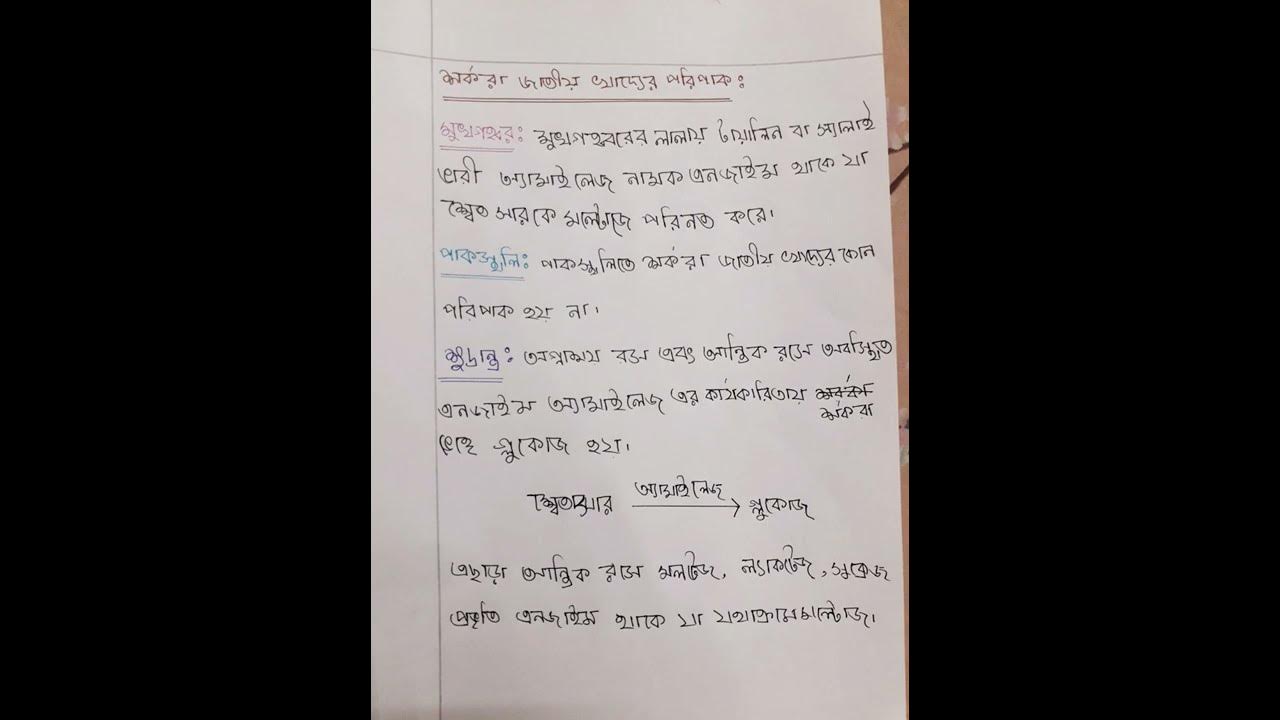 শর্করা জাতীয় খাদ্যের পরিপাকঃ
মুখগহ্বরঃ মুখগহ্বরের লালায় টায়ালিন বা স্যালাই
ভারী অ্যামাইলেজ নামক এনজাইম থাকে যা
শ্বেত সারকে মল্টোজে পরিনত করে।
পাকস্থলিঃ পাকস্থলিতে শর্করা জাতীয় খাদ্যের কোন
পরিপাক হয় না।
ক্ষুদ্রান্ত্রঃ অগ্নাশয় রস এবং আন্ত্রিক রসে অবস্থিত
এনজাইম অ্যামাইলেজ এর কার্যকারিতায় শর্করা
ভেঙ্গে গ্লুকোজ হয়।
শ্বেতসার অ্যামাইলেজ → গ্লুকোজ
এছাড়া আন্ত্রিক রসে মলটেজ, ল্যাকটেজ, সুক্রেজ
প্রভৃতি এনজাইম থাকে যা যথাক্রমে মল্টোজ।